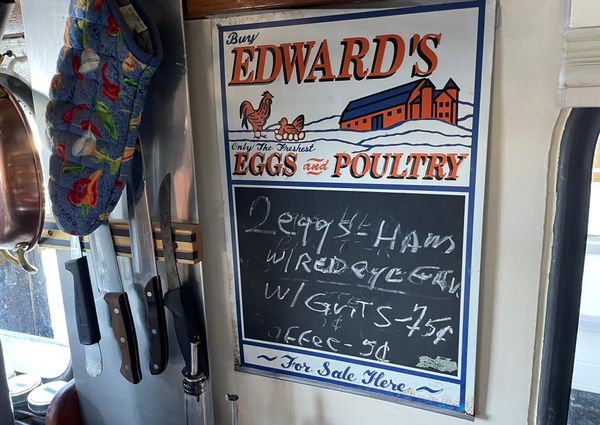 Buy
EDWARD'S
Only The Freshest
EGGS and POULTRY
2 eggs - Ham
W/RED eye
W/GritS - 75¢
5¢
~ For Sale Here ~